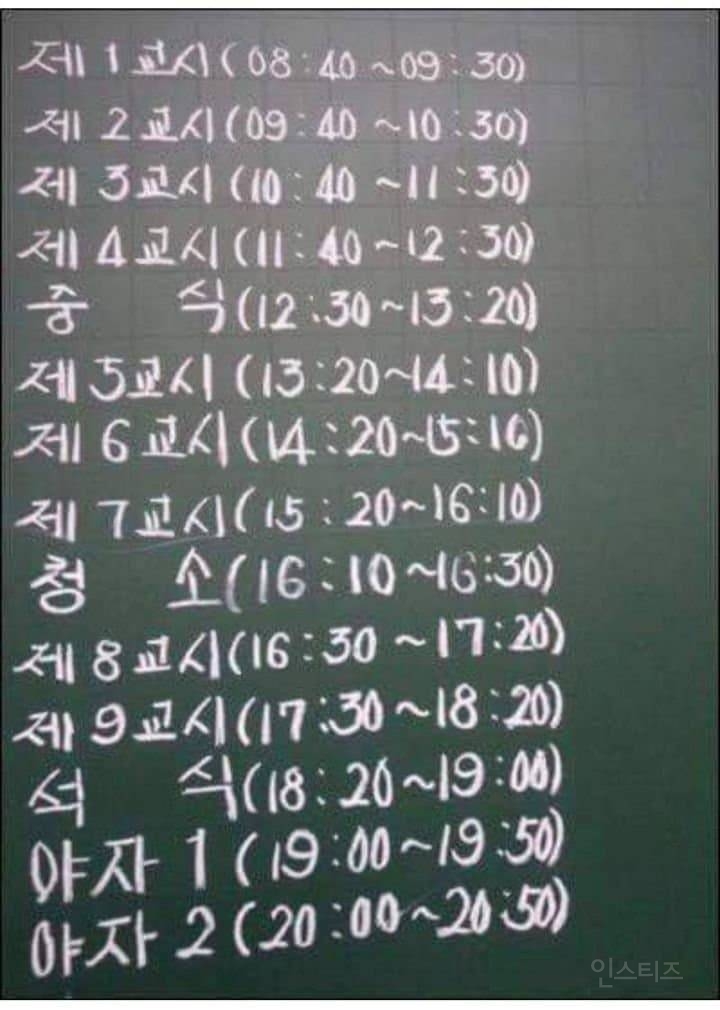 제 1 교시(08:40~09:30)
제 2 교시(09:40~10:30)
제 3교시(10:40~11:30)
제 4교시(11:40~12:30)
중 식(12:30~13:20)
제 5교시(13:20~14:10)
제 6교시(14:20~15:10)
제 7교시(15:20~16:10)
청 소(16:10~16:30)
제 8교시(16:30~17:20)
제 9교시(17:30~18:20)
석 식(18:20~19:00)
야자 1(19:00~19:50)
야자 2(20:00~20:50)
인스티즈